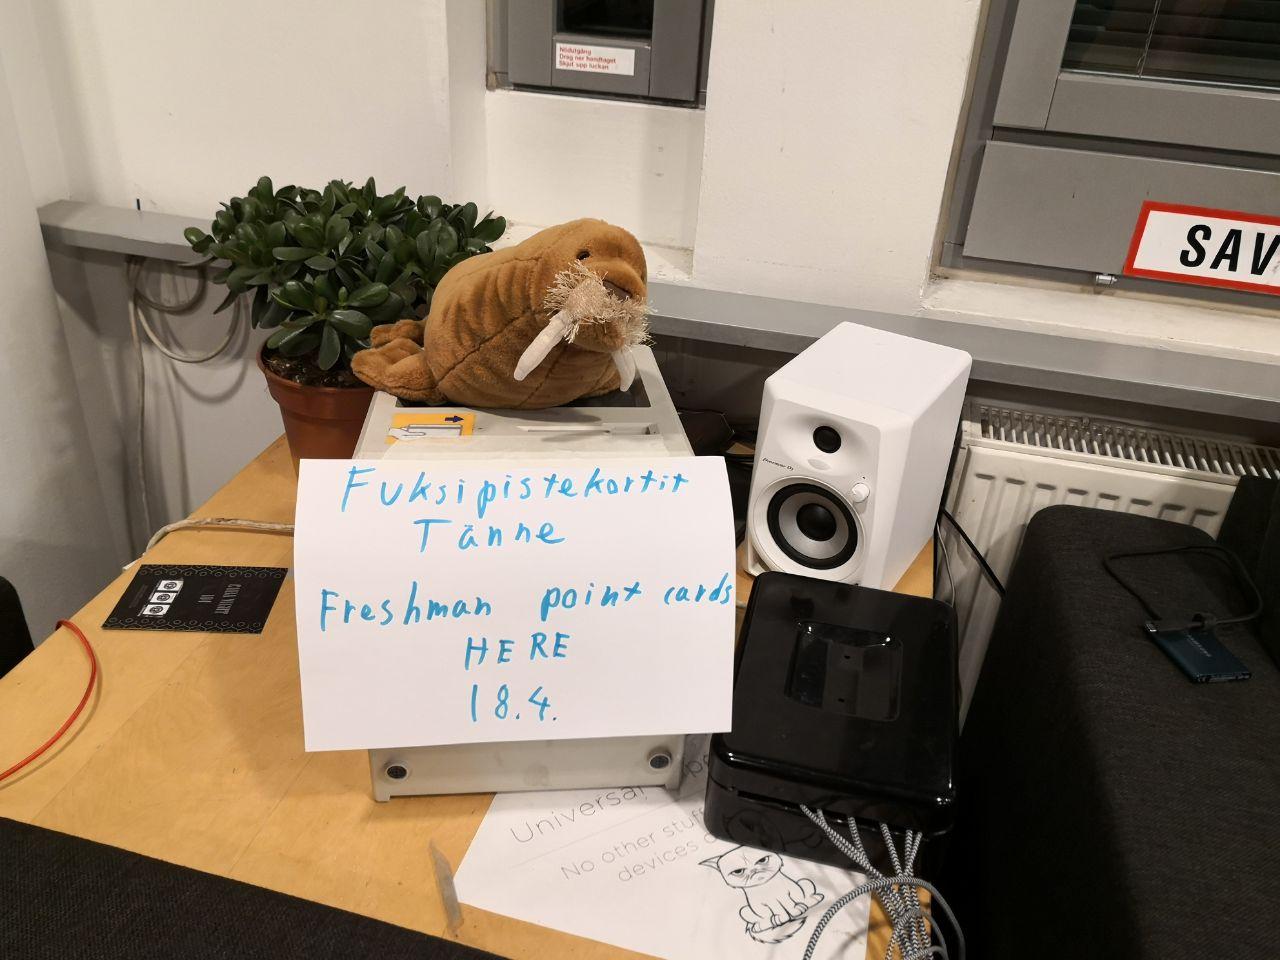 Nödutgång
Drag ner handtaget
Skjut upp luckan
SAV
Pioneer Dj
Fuksipistekortit
Tänne
Freshman point cards
HERE
18.4.
CASA NIGHT
Universal
No other stuff
devices